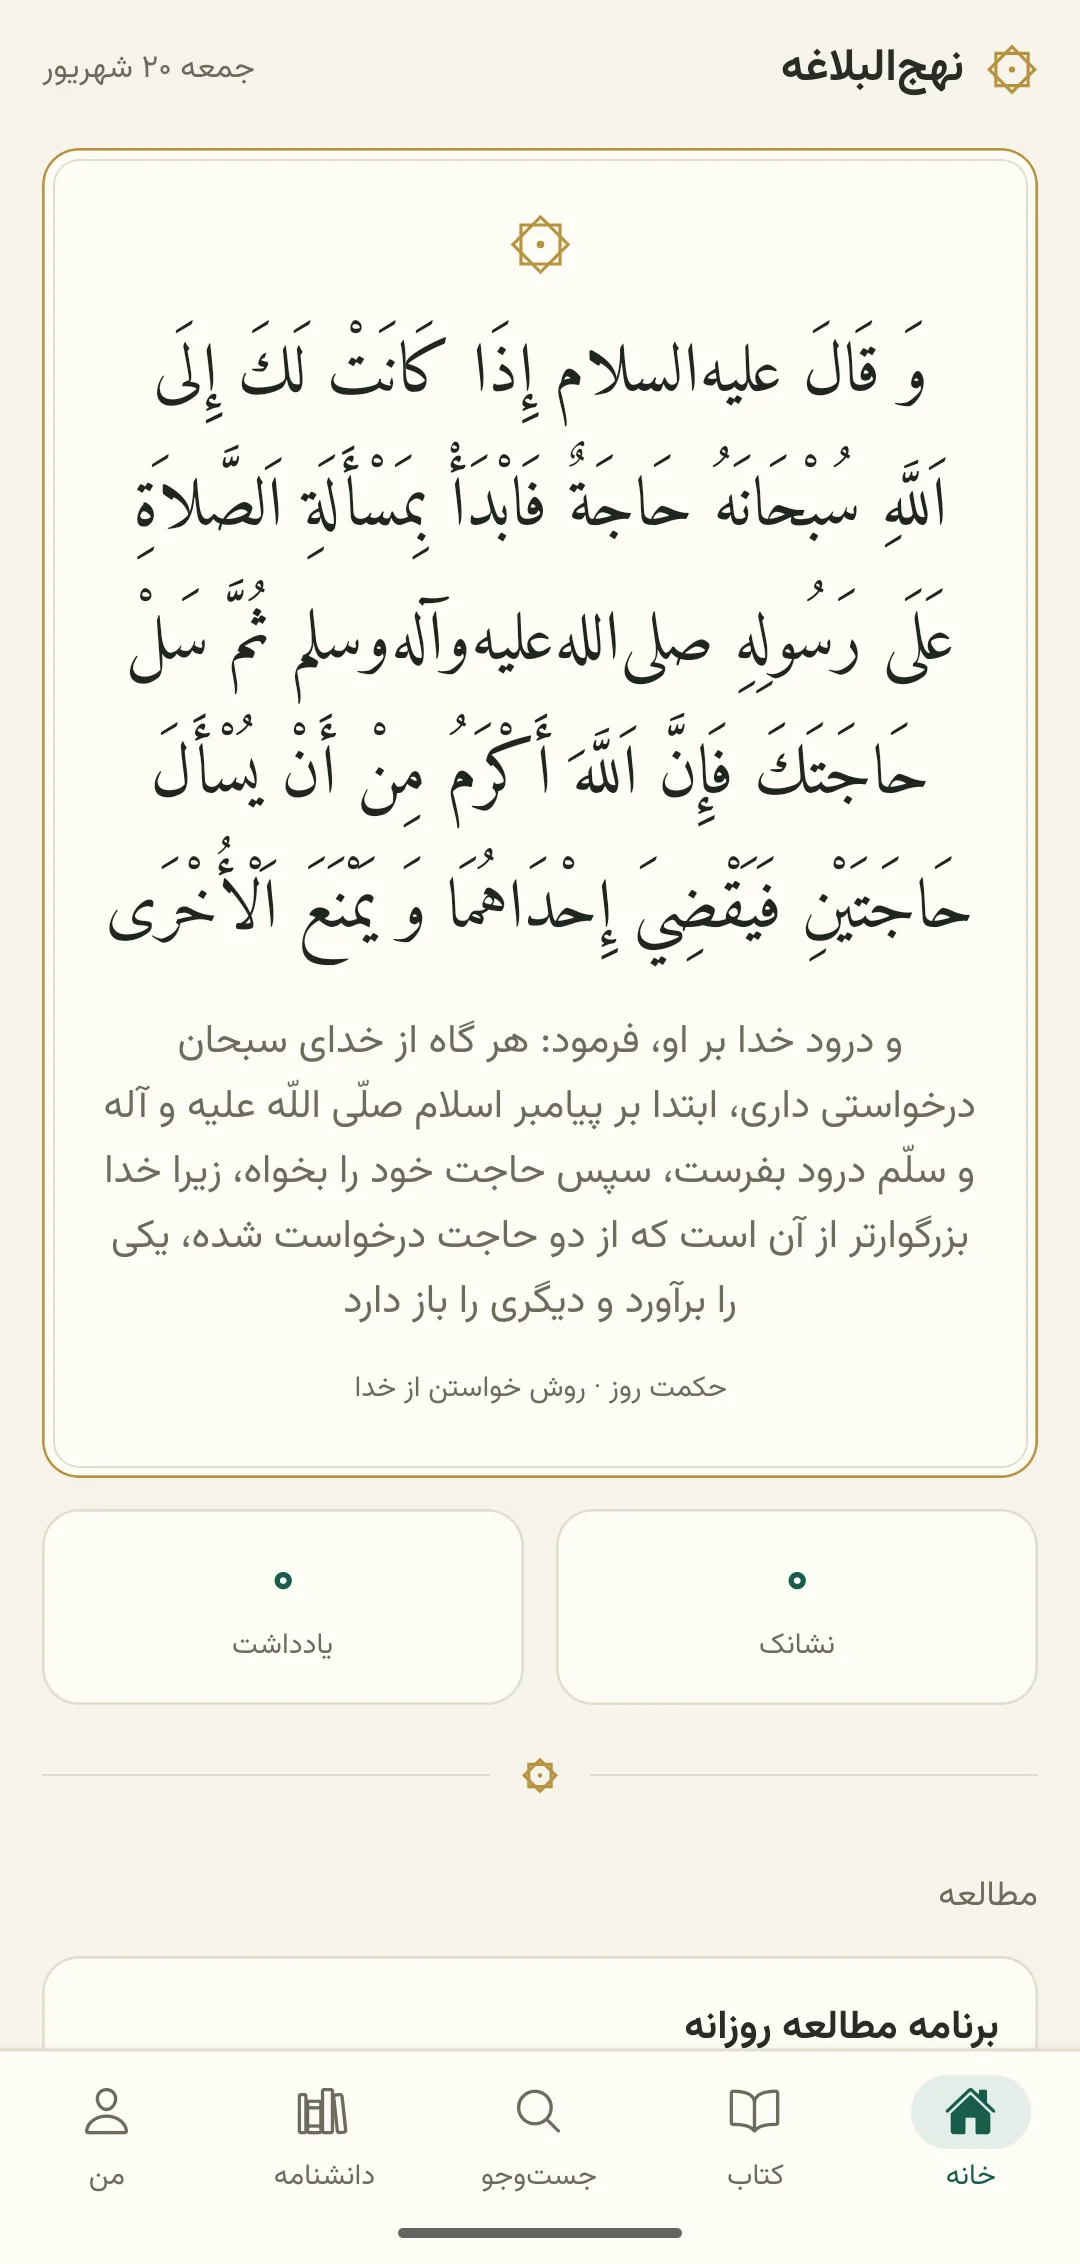 نهج‌البلاغه
جمعه ۲۰ شهریور
وَ قَالَ علیه‌السلام إِذَا كَانَتْ لَكَ إِلَى
اَللَّهِ سُبْحَانَهُ حَاجَةٌ فَابْدَأْ بِمَسْأَلَةِ اَلصَّلاَةِ
عَلَى رَسُولِهِ صلى‌الله‌عليه‌وآله‌وسلم ثُمَّ سَلْ
حَاجَتَكَ فَإِنَّ اَللَّهَ أَكْرَمُ مِنْ أَنْ يُسْأَلَ
حَاجَتَيْنِ فَيَقْضِيَ إِحْدَاهُمَا وَ يَمْنَعَ اَلْأُخْرَى
و درود خدا بر او، فرمود: هر گاه از خدای سبحان
درخواستی داری، ابتدا بر پیامبر اسلام صلّی اللّه علیه و آله
و سلّم درود بفرست، سپس حاجت خود را بخواه، زیرا خدا
بزرگوارتر از آن است که از دو حاجت درخواست شده، یکی
را برآورد و دیگری را باز دارد
حکمت روز · روش خواستن از خدا
۰
نشانک
۰
یادداشت
مطالعه
برنامه مطالعه روزانه
خانه
کتاب
جست‌وجو
دانشنامه
من